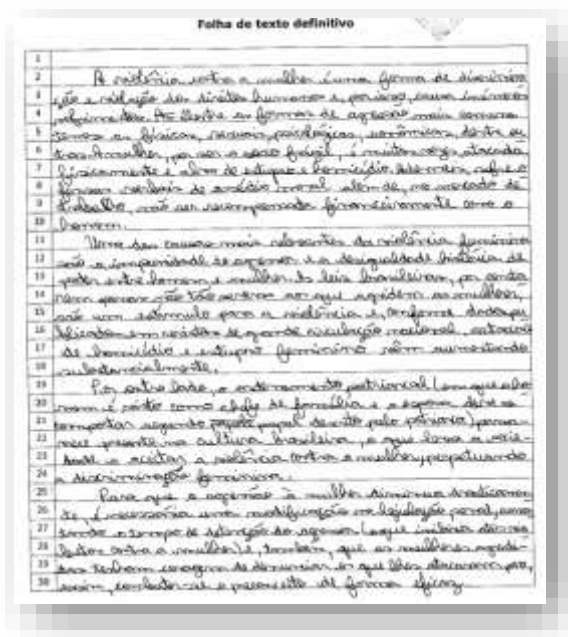 Folha de texto definitivo
1
2 A violência contra a mulher é uma forma de discrimina
3 ção e violação dos direitos humanos e, por isso, causa inúmeros
4 sofrimentos. Dentre as formas de agressão mais comuns
5 temos as físicas, sexuais, psicológicas, econômicas, dentre ou
6 tras. A mulher, por ser o sexo frágil, é muitas vezes atacada
7 fisicamente e alvo de estupro e homicídio. Ademais, sofre o
8 verbais de assédio moral além de, no mercado de
9 trabalho, não ser recompensada financeiramente como o
10 homem.
11 Uma das causas mais relevantes da violência feminina
12 são a impunidade do agressor e a desigualdade histórica de
13 poder entre homem e mulher. As leis brasileiras, por
14 penas tão severas aos que agridem as mulheres,
15 são um estímulo para a violência e, conforme dados pu
16 blicados em de grande circulação nacional, os
17 de homicídio e estupro feminino vêm aumentando
18 substancialmente.
19 Por outro lado, o ordenamento patriarcal (em que o ho
20 mem é visto como chefe de família e a esposa deve se
21 comportar segundo papel descrito pelo patriarca) perma
22 nece presente na cultura brasileira, o que leva a socie
23 dade a aceitar a violência contra a mulher, perpetuando
24 a discriminação feminina.
25 Para que a agressão à mulher diminua drasticamen
26 te, é necessária uma modificação na legislação penal, aumen
27 tando o tempo de detenção do agressor (o que inibiria
28 contra a mulher) e, também, que as mulheres agredi
29 das tenham coragem de denunciar os que lhes atacaram para,
30 assim, combater-se o preconceito de forma eficaz.